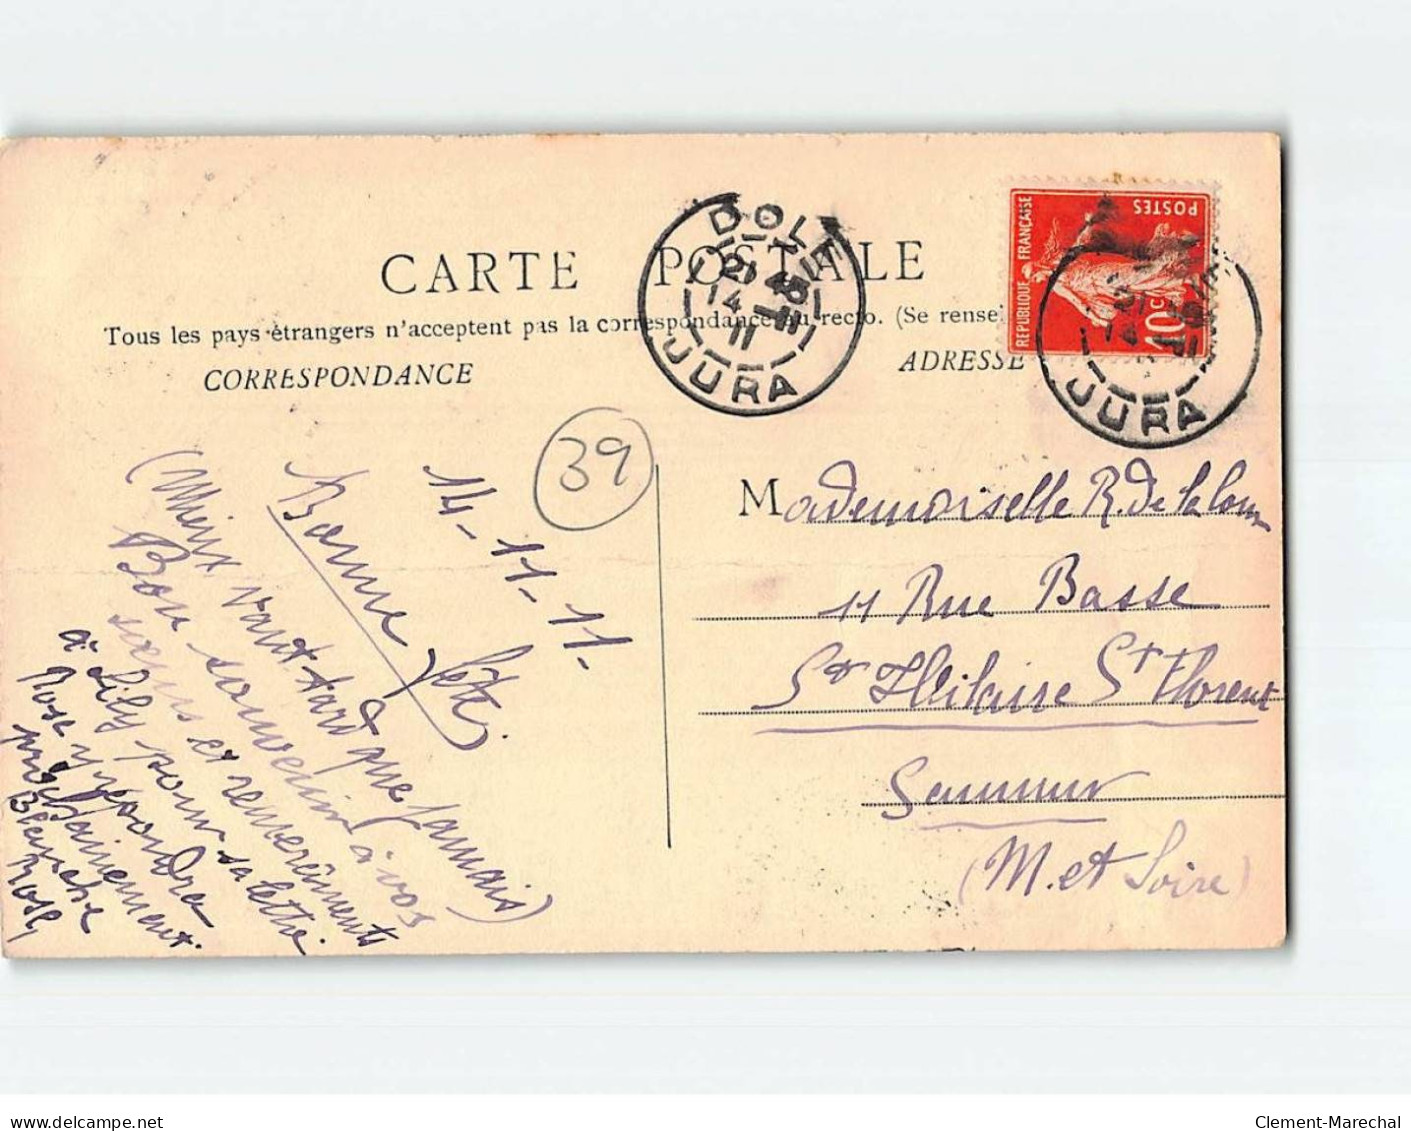 CARTE POSTALE
Tous les pays étrangers n'acceptent pas la correspondance au recto. (Se rensei
CORRESPONDANCE
ADRESSE
DOLE
21 45
14
11
JURA
REPUBLIQUE FRANÇAISE
POSTES
10c
JURA
39
14-11-11-
Bonne fête.
(Mieux vaut tard que jamais)
Bon souvenir à vos
sœurs et remerciments
à Lily pour sa lettre.
Rose y répondra
prochainement.
Blanche
Rose
Mademoiselle R. de la
11 Rue Basse
St Hilaire St Florent
Saumur
(M. et Loire)
delcampe.net
Clement-Marechal